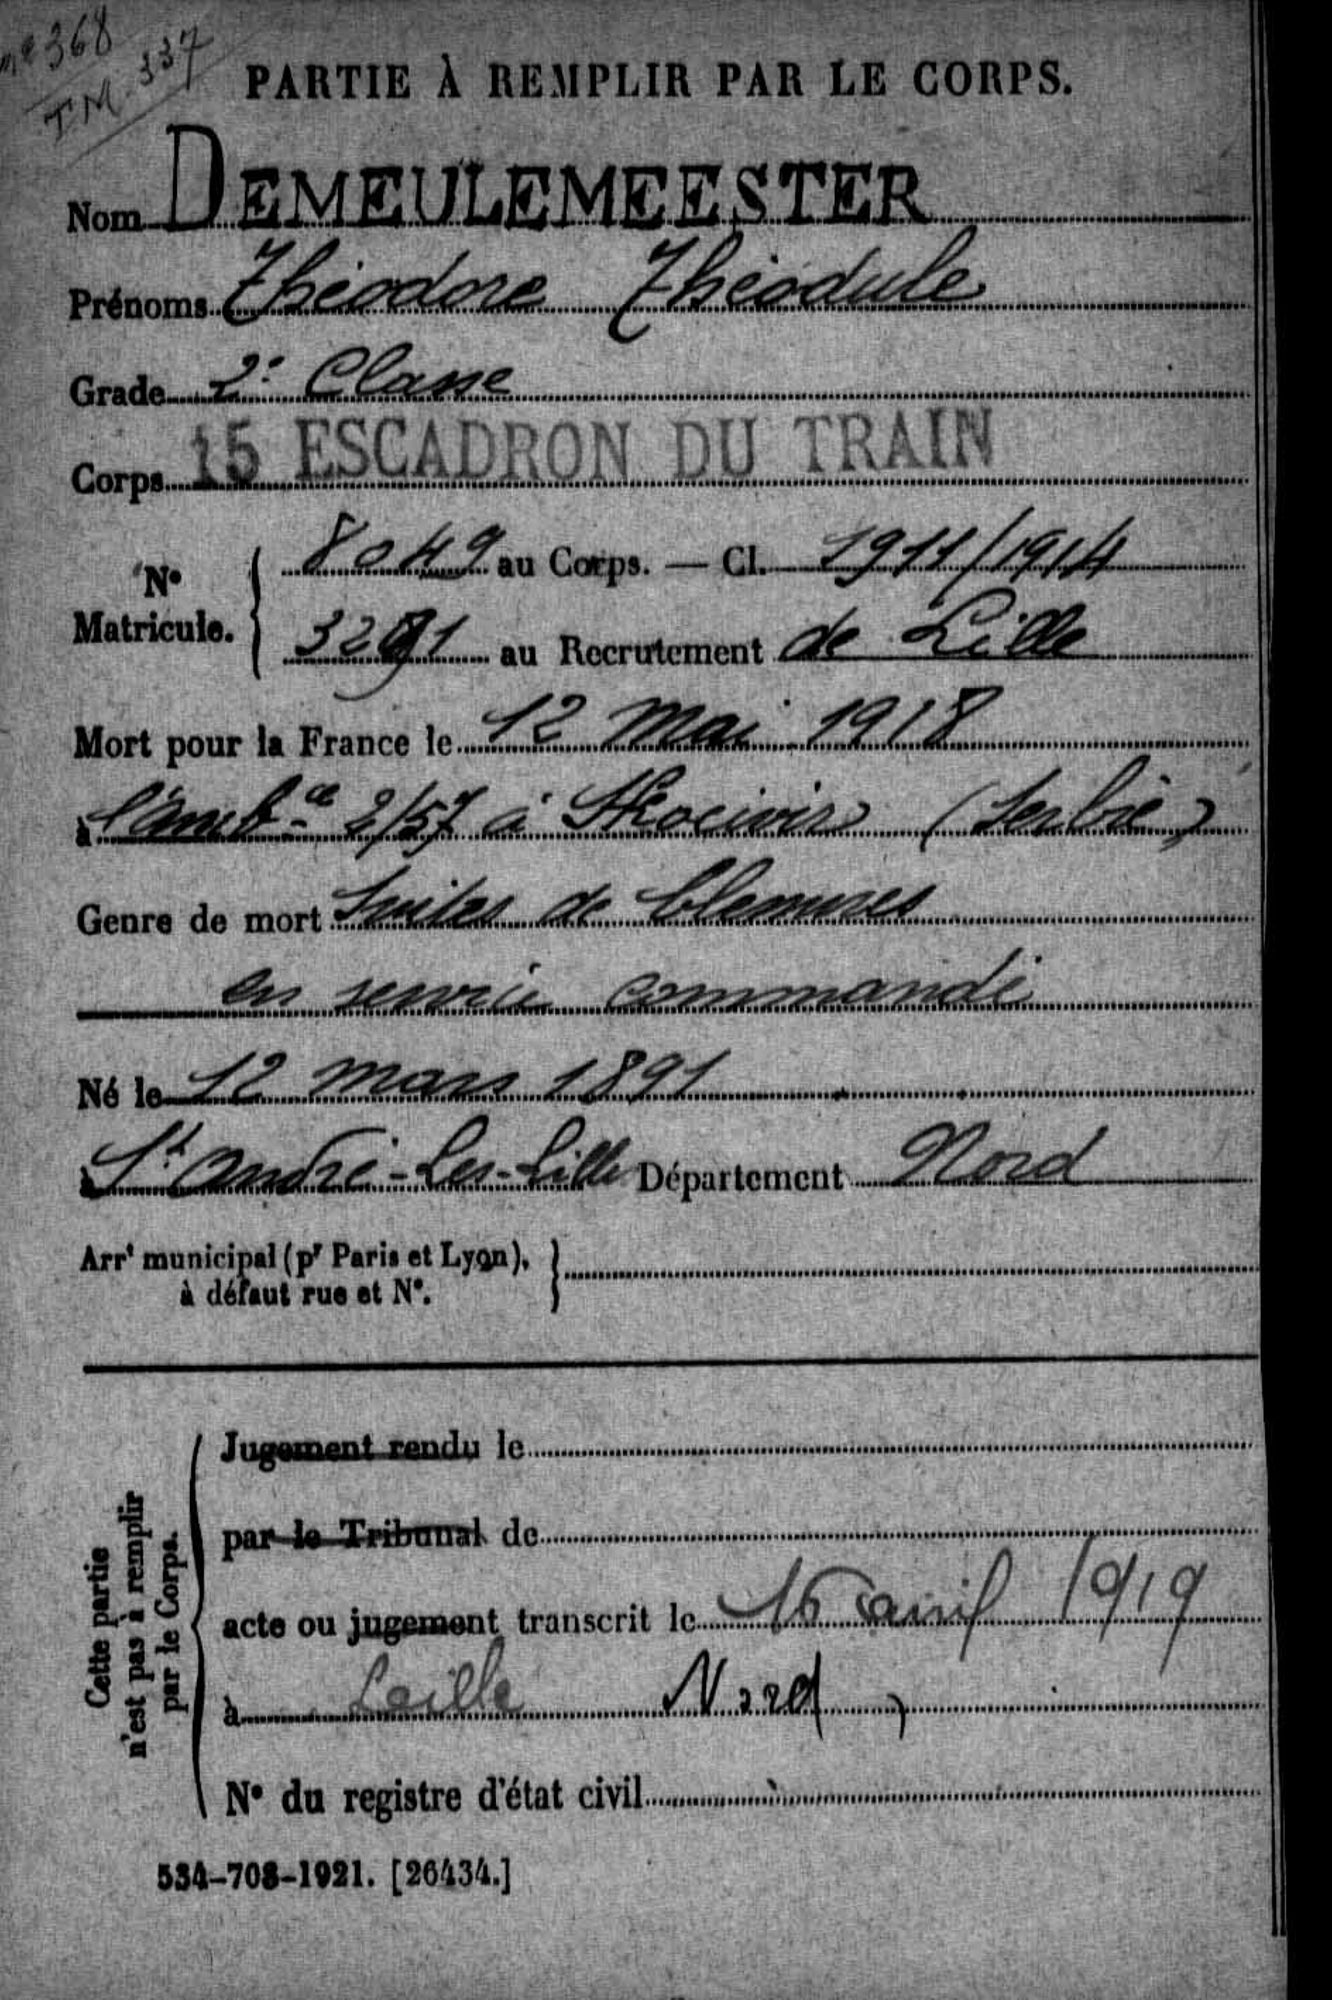 368
T.M. 337
PARTIE À REMPLIR PAR LE CORPS.
Nom DEMEULEMEESTER
Prénoms Théodore Théodule
Grade 2e Classe
Corps 15 ESCADRON DU TRAIN
No Matricule. 8049 au Corps. — Cl. 1911/1914
3291 au Recrutement de Lille
Mort pour la France le 12 Mai 1918
à l'ambce 2/57 à Skocivir (Serbie)
Genre de mort Suites de blessures
en service commandé
Né le 12 Mars 1891
à St André-Les-Lille Département Nord
Arrt municipal (pr Paris et Lyon),
à défaut rue et No.
Cette partie
n'est pas à remplir
par le Corps.
Jugement rendu le
par le Tribunal de
acte ou jugement transcrit le 16 avril 1919
à Lille Nord
No du registre d'état civil
534-708-1921. [26434.]